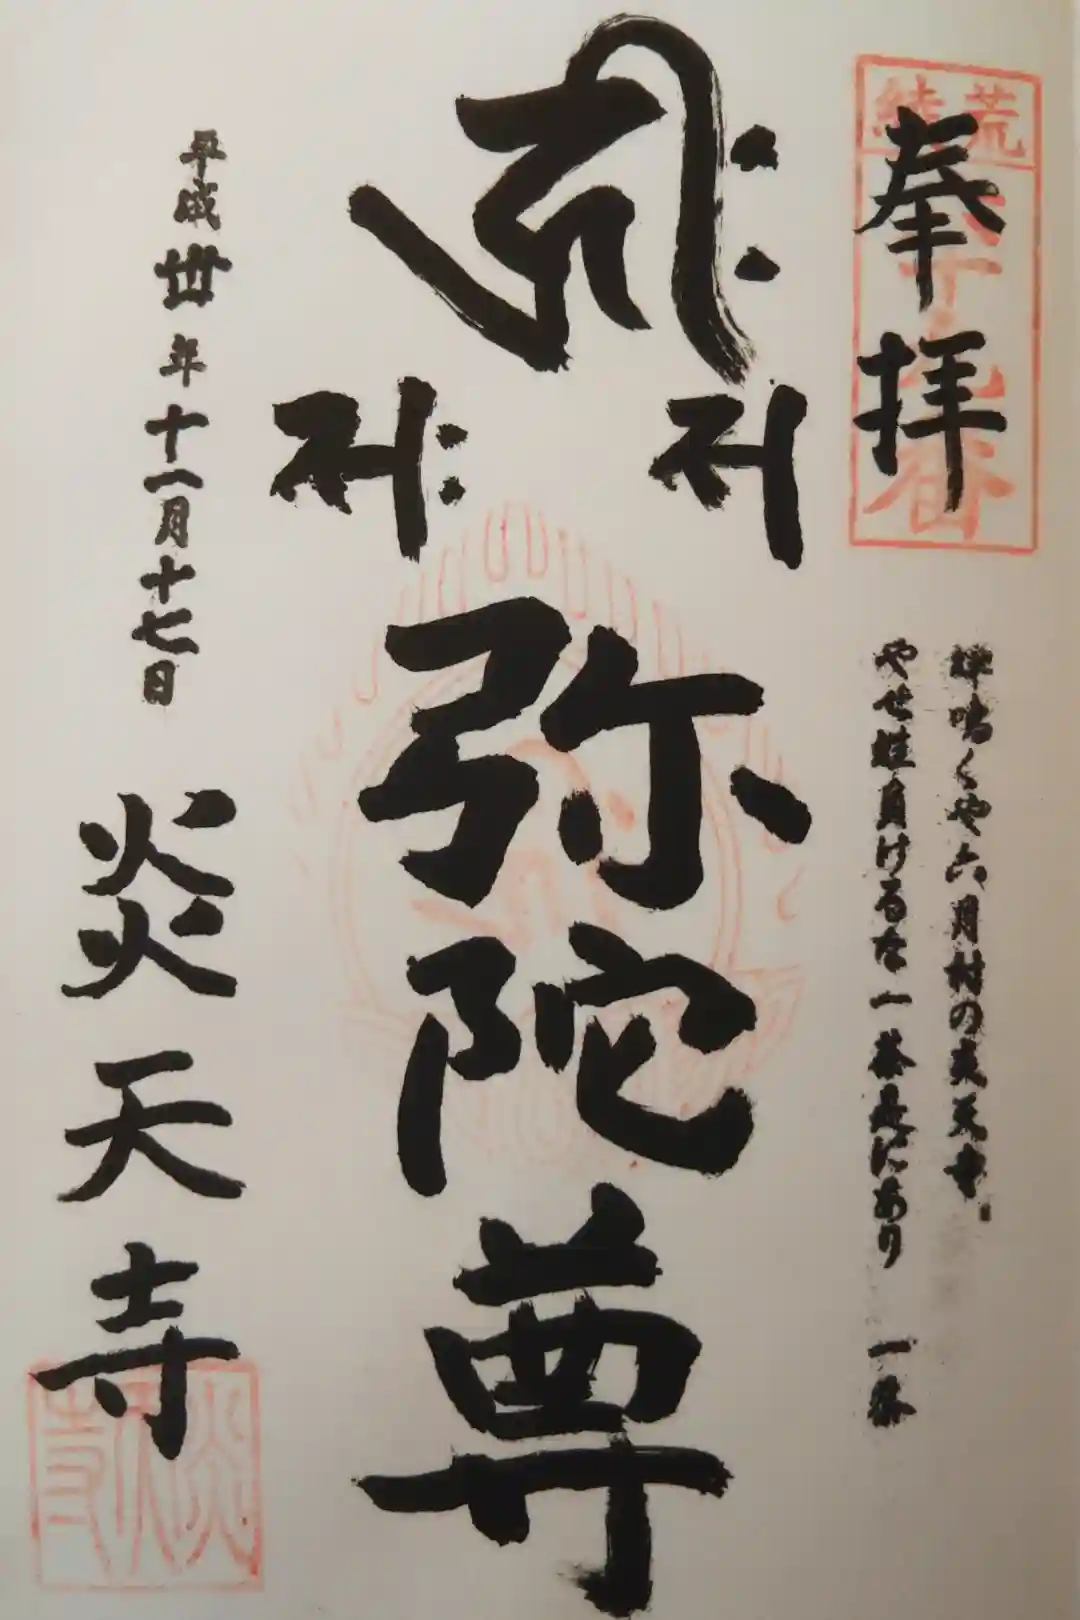 奉拝
荒綾
八十八番
蝉鳴くや六月村の炎天寺
やせ蛙負けるな一茶是にあり 一茶
弥陀尊
平成卅年十一月十七日
炎天寺
炎天寺